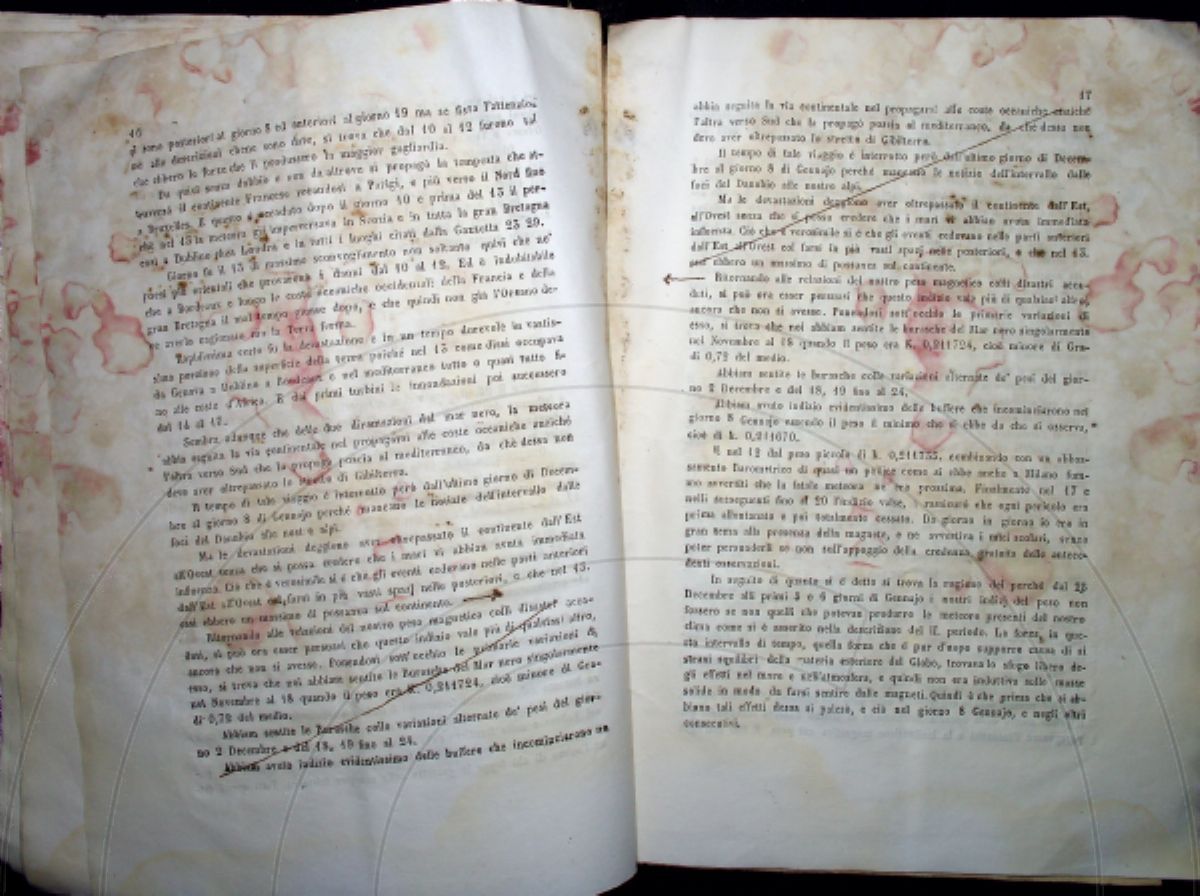 46
si sono posteriori al giorno 8 ed anteriori al giorno 19 ma se fissa l'attenzio-
ne alle descrizioni come sono date, si trova che dal 10 al 12 furono sul
che ebbero le forze che li produssero la maggior gagliardia.
Da quivi senza dubbio e non da altrove si propagò la tempesta che at-
traversò il continente Francese recandosi a Parigi, e più verso il Nord fino
a Bruxelles. E questo è accaduto dopo il giorno 10 e prima del 13 il per-
chè nel 13 la meteora già imperversava in Scozia e in tutta la gran Bretagna
così a Dublino che Londra e in tutti i luoghi citati dalla Gazzetta 23 29.
Giorno fu il 13 di massimo sconvolgimento non soltanto quivi che ne'
paesi più orientali che provarono i danni dal 10 al 12. Ed è indubitabile
che a Bordeaux e lungo le coste oceaniche occidentali della Francia e della
gran Bretagna il mal tempo giunse dopo, e che quindi non già l'Oceano de-
ve averlo cagionato ma la Terra ferma.
Rapidissima certo fu la devastazione e in un tempo durevole in vastis-
sima porzione della superficie della terra poichè nel 13 come dissi occupava
da Genova a Dublino a Bordeaux e nel mediterraneo tutto o quasi tutto fi-
no alle coste d'Africa. E dai primi turbini le inondazioni poi successero
dal 14 al 17.
Sembra adunque che delle due diramazioni dal mar nero, la meteora
abbia seguita la via continentale nel propagarsi alle coste oceaniche anzichè
l'altra verso Sud che la propagò poscia al mediterraneo, da chè dessa non
deve aver oltrepassato lo stretto di Gibilterra.
Il tempo di tale viaggio è interrotto però dall'ultimo giorno di Decem-
bre al giorno 8 di Gennajo perchè mancano le notizie dell'intervallo dalle
foci del Danubio alle nostre alpi.
Ma le devastazioni deggiono aver oltrepassato il continente dall'Est
all'Ovest senza che si possa credere che i mari vi abbian avuta immediata
influenza. Ciò che è verosimile si è che gli eventi cedevano nelle parti anteriori
dall'Est all'Ovest col farsi in più vasti spazj nelle posteriori, e che nel 13.
essi ebbero un massimo di possanza sul continente.
Ritornando alle relazioni del nostro peso magnetico colli disastri acca-
duti, si può ora esser persuasi che questo indizio vale più di qualsiasi altro,
ancora che non si avesse. Ponendosi sott'occhio le primarie variazioni di
esso, si trova che noi abbiam sentite le burasche del Mar nero singolarmente
nel Novembre al 18 quando il peso era K. 0,211724, cioè minore di Gra-
di 0,72 del medio.
Abbiam sentite le Burasche colle variazioni alternate de' pesi del gior-
no 2 Decembre e del 18, 19 fino al 24.
Abbiam avuto indizio evidentissimo delle buffere che incominciarono nel
47
abbia seguita la via continentale nel propagarsi alle coste oceaniche anzichè
l'altra verso Sud che la propagò poscia al mediterraneo, da chè dessa non
deve aver oltrepassato lo stretto di Gibilterra.
Il tempo di tale viaggio è interrotto però dall'ultimo giorno di Decem-
bre al giorno 8 di Gennajo perchè mancano le notizie dell'intervallo dalle
foci del Danubio alle nostre alpi.
Ma le devastazioni deggiono aver oltrepassato il continente dall'Est,
all'Ovest senza che si possa credere che i mari vi abbian avuta immediata
influenza. Ciò che è verosimile si è che gli eventi cedevano nelle parti anteriori
dall'Est all'Ovest col farsi in più vasti spazj nelle posteriori, e che nel 13.
essi ebbero un massimo di possanza sul continente.
Ritornando alle relazioni del nostro peso magnetico colli disastri acca-
duti, si può ora esser persuasi che questo indizio vale più di qualsiasi altro,
ancora che non si avesse. Ponendosi sott'occhio le primarie variazioni di
esso, si trova che noi abbiam sentite le burasche del Mar nero singolarmente
nel Novembre al 18 quando il peso era K. 0,211724, cioè minore di Gra-
di 0,72 del medio.
Abbiam sentite le Burasche colle variazioni alternate de' pesi del gior-
no 2 Decembre e del 18, 19 fino al 24.
Abbiam avuto indizio evidentissimo delle buffere che incominciarono nel
giorno 8 Gennajo essendo il peso il minimo che si ebbe da che si osserva,
cioè di k. 0,211670.
E nel 12 dal peso piccolo di k. 0,211755, combinando con un abbas-
samento Barometrico di quasi un pollice come si ebbe anche a Milano fum-
mo avvertiti che la fatale meteora ne era prossima. Finalmente nel 17 e
nelli susseguenti fino al 20 l'indizio valse, a rammare che ogni pericolo era
prima allontanato e poi totalmente cessato. Da giorno in giorno io era in
gran tema alla presenza della magnete, e ne avvertiva i miei scolari, senza
poter persuaderli se non nell'appoggio della credenza, gratuita dalle antece-
denti osservazioni.
In seguito di quanto si è detto si trova la ragione del perchè dal 25
Decembre alli primi 5 o 6 giorni di Gennajo i nostri indizj del peso non
fossero se non quelli che potevan produrre le meteore presenti del nostro
clima come si è asserito nella descrizione del II. periodo. Le forze, in que-
sto intervallo di tempo, quella forza che è pur d'uopo supporre causa di si
strani squilibri della materia esteriore del Globo, trovava lo sfogo libero de-
gli effetti nel mare e nell'atmosfera, e quindi non era induttiva sulle masse
solide in modo da farsi sentire dalle magneti. Quindi è che prima che si ab-
biano tali effetti dessa si palesa, e ciò nel giorno 8 Gennajo, e negli altri
consecutivi.